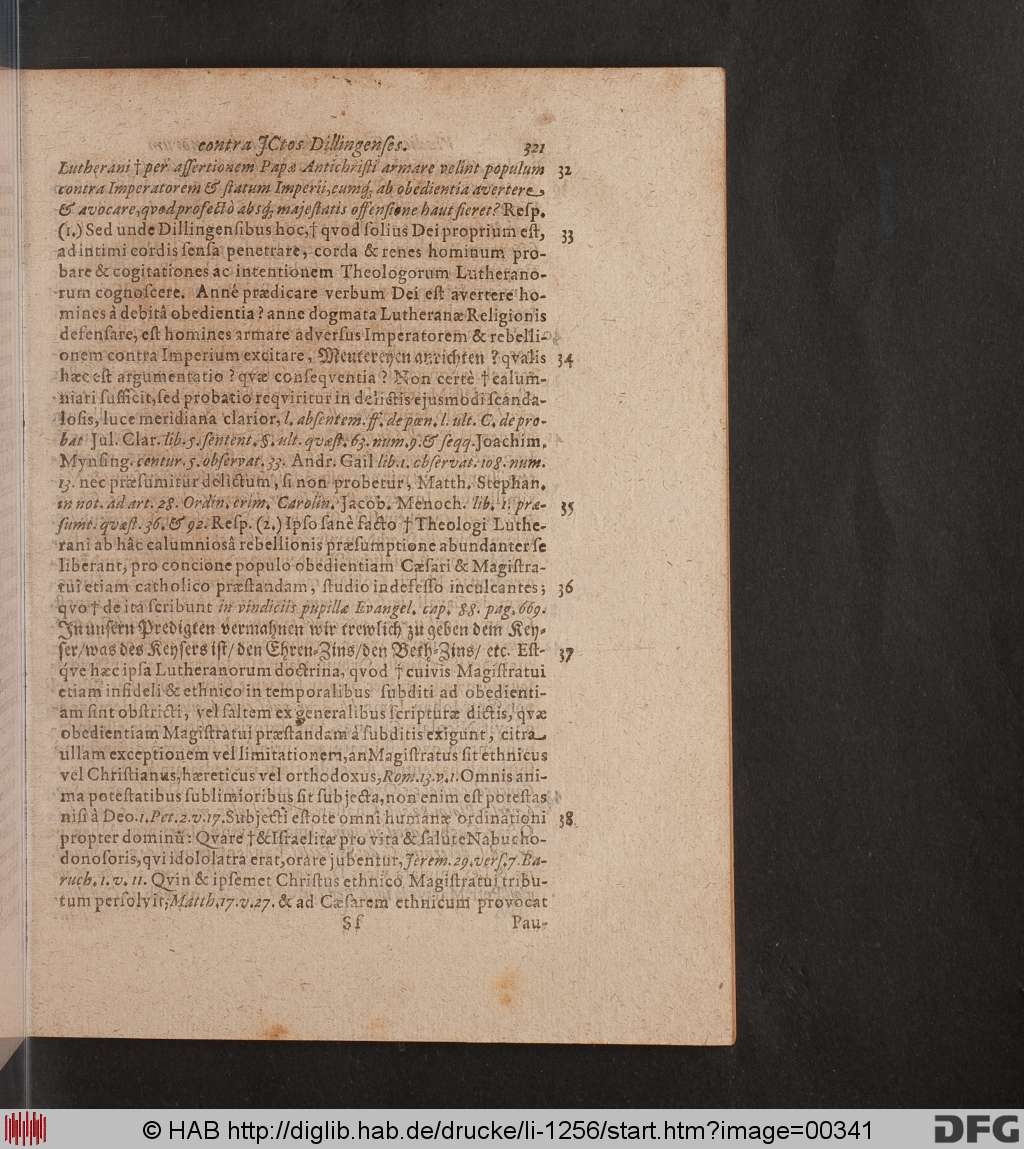 contra JCtos Dillingenses. 321
Lutherani † per assertionem Papæ Antichristi armare velint populum 32
contra Imperatorem & statum Imperii, eumq; ab obedientia avertere
& avocare, qvod profectò absq; majestatis offensione haut fieret? Resp.
(1.) Sed unde Dillingensibus hoc, † qvod solius Dei proprium est, 33
ad intimi cordis sensa penetrare, corda & renes hominum pro-
bare & cogitationes ac intentionem Theologorum Lutherano-
rum cognoscere. Annè prædicare verbum Dei est avertere ho-
mines â debitâ obedientia? anne dogmata Lutheranæ Religionis
defensare, est homines armare adversus Imperatorem & rebelli-
onem contra Imperium excitare, Meutereyen anrichten? qvalis 34
hæc est argumentatio? qvæ conseqventia? Non certè † calum-
niari sufficit, sed probatio reqviritur in delictis ejusmodi scanda-
losis, luce meridiana clarior, l. absentem. ff. de pœn. l. ult. C. de pro-
bat Jul. Clar. lib. 5. sentent. §. ult. quæst. 63. num. 9. & seqq. Joachim.
Mynsing. centur. 5. observat. 33. Andr. Gail lib. 1. observat. 108. num.
13. nec præsumitur delictum, si non probetur, Matth. Stephan.
in not. ad art. 28. Ordin. crim. Carolin. Jacob. Menoch. lib. 1. præ- 35
sumt. qvæst. 36. & 92. Resp. (2.) Ipso sanè facto † Theologi Luthe-
rani ab hâc calumniosâ rebellionis præsumptione abundanter se
liberant, pro concione populo obedientiam Cæsari & Magistra-
tui etiam catholico præstandam, studio indefesso inculcantes; 36
qvo † de ita scribunt in vindiciis pupillæ Evangel. cap. 88. pag. 669.
In unsern Predigten vermahnen wir trewlich zu geben dem Key-
ser/was des Keysers ist/den Ehren-Zins/den Beth-Zins/ etc. Est- 37
q́ve hæc ipsa Lutheranorum doctrina, qvod † cuivis Magistratui
etiam infideli & ethnico in temporalibus subditi ad obedienti-
am sint obstricti, vel saltem ex generalibus scripturæ dictis, qvæ
obedientiam Magistratui præstandam â subditis exigunt, citra
ullam exceptionem vel limitationem, an Magistratus sit ethnicus
vel Christianus, hæreticus vel orthodoxus, Rom. 13. v. 1. Omnis ani-
ma potestatibus sublimioribus sit subjecta, non enim est potestas
nisi â Deo. 1. Pet. 2. v. 17. Subjecti estote omni humanæ ordinationi 38
propter dominũ: Qvare † & Israelitæ pro vita & salute Nabucho-
donosoris, qvi idololatra erat, orare jubentur, Jerem. 29. vers. 7. Ba-
ruch. 1. v. 11. Qvin & ipsemet Christus ethnico Magistratui tribu-
tum persolvit, Matth. 17. v. 27. & ad Cæsarem ethnicum provocat
Sf Pau-
© HAB http://diglib.hab.de/drucke/li-1256/start.htm?image=00341 DFG